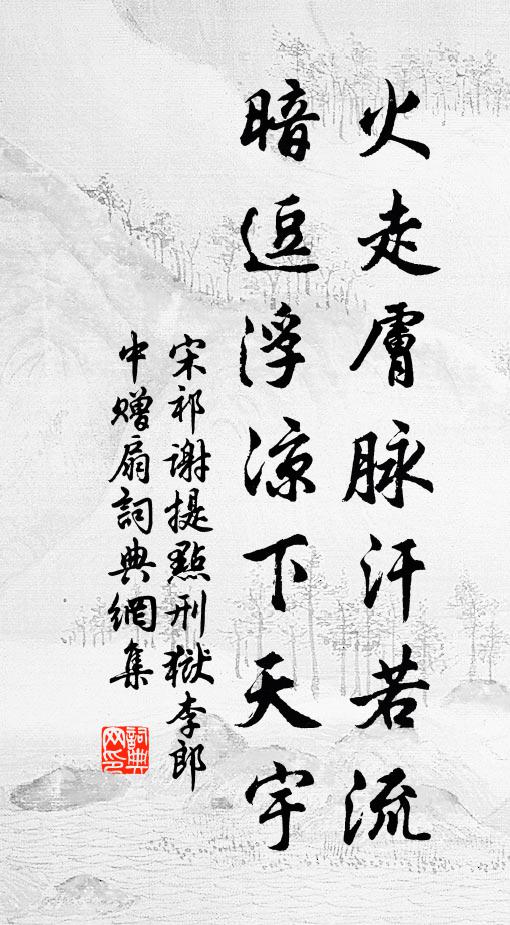 火走膚脉汗若流
暗逗浮涼下天宇
宋祁謝提點刑獄李郎
中赠扇詞典網集
詞典
网印